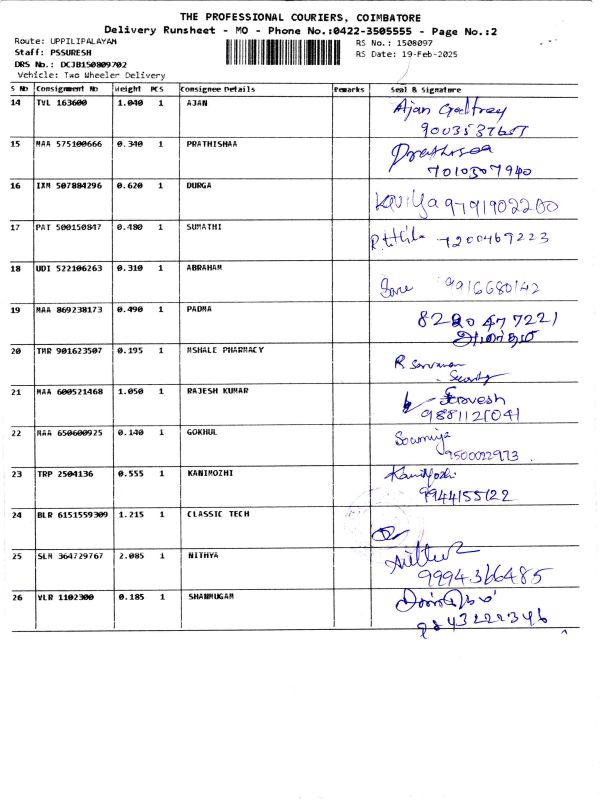 THE PROFESSIONAL COURIERS, COIMBATORE
Delivery Runsheet - MO - Phone No.:0422-3505555 - Page No.:2
Route: UPPILIPALAYAM RS No.: 1508097
Staff: PSSURESH RS Date: 19-Feb-2025
DRS No.: DCJB150809702
Vehicle: Two Wheeler Delivery
S No Consignment No Weight PCS Consignee Details Remarks Seal & Signature
14 TVL 163600 1.040 1 AJAN Ajan Godfrey
9003537607
15 MAA 575100666 0.340 1 PRATHISHAA
7010507940
16 IXM 507884296 0.620 1 DURGA Kaviya 9791902200
17 PAT 500150847 0.480 1 SUMATHI 7200469223
18 UDI 522106263 0.310 1 ABRAHAM 9916680142
19 MAA 869238173 0.490 1 PADMA 8220477221
20 TMR 901623507 0.195 1 MSHALE PHARMACY R Saravanan
Security
21 MAA 600521468 1.050 1 RAJESH KUMAR Sarvesh
9881121041
22 MAA 650600925 0.140 1 GOKHUL Sowmiya
9500022973
23 TRP 2504136 0.555 1 KANIMOZHI Kanimozhi
9944155122
24 BLR 6151559309 1.215 1 CLASSIC TECH
25 SLM 364729767 2.085 1 NITHYA
9994366485
26 VLR 1102300 0.185 1 SHANMUGAM
9843222346